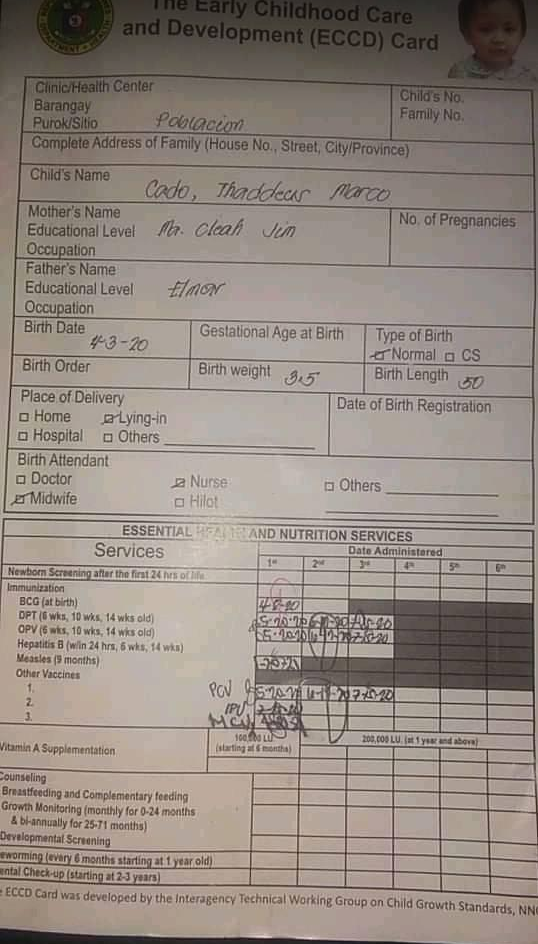 The Early Childhood Care
and Development (ECCD) Card
Clinic/Health Center
Barangay
Purok/Sitio Poblacion
Child's No.
Family No.
Complete Address of Family (House No., Street, City/Province)
Child's Name
Cado, Thaddeus Marco
Mother's Name
Educational Level Ma. Cleah Jim
Occupation
No. of Pregnancies
Father's Name
Educational Level Elmor
Occupation
Birth Date
4-3-20
Gestational Age at Birth
Type of Birth
Normal CS
Birth Order
Birth weight 3.5
Birth Length 50
Place of Delivery
Home Lying-in
Hospital Others
Date of Birth Registration
Birth Attendant
Doctor Nurse Others
Midwife Hilot
ESSENTIAL HEALTH AND NUTRITION SERVICES
Services Date Administered
1st 2nd 3rd 4th 5th 6th
Newborn Screening after the first 24 hrs of life
Immunization
BCG (at birth) 4-8-20
DPT (6 wks, 10 wks, 14 wks old) 5-20-20
OPV (6 wks, 10 wks, 14 wks old) 5-20-20
Hepatitis B (w/in 24 hrs, 6 wks, 14 wks)
Measles (9 months)
Other Vaccines
1. PCV
2. IPV
3. MCV
Vitamin A Supplementation
100,000 I.U.
(starting at 6 months)
200,000 I.U. (at 1 year and above)
Counseling
Breastfeeding and Complementary feeding
Growth Monitoring (monthly for 0-24 months
& bi-annually for 25-71 months)
Developmental Screening
eworming (every 6 months starting at 1 year old)
ental Check-up (starting at 2-3 years)
e ECCD Card was developed by the Interagency Technical Working Group on Child Growth Standards, NN